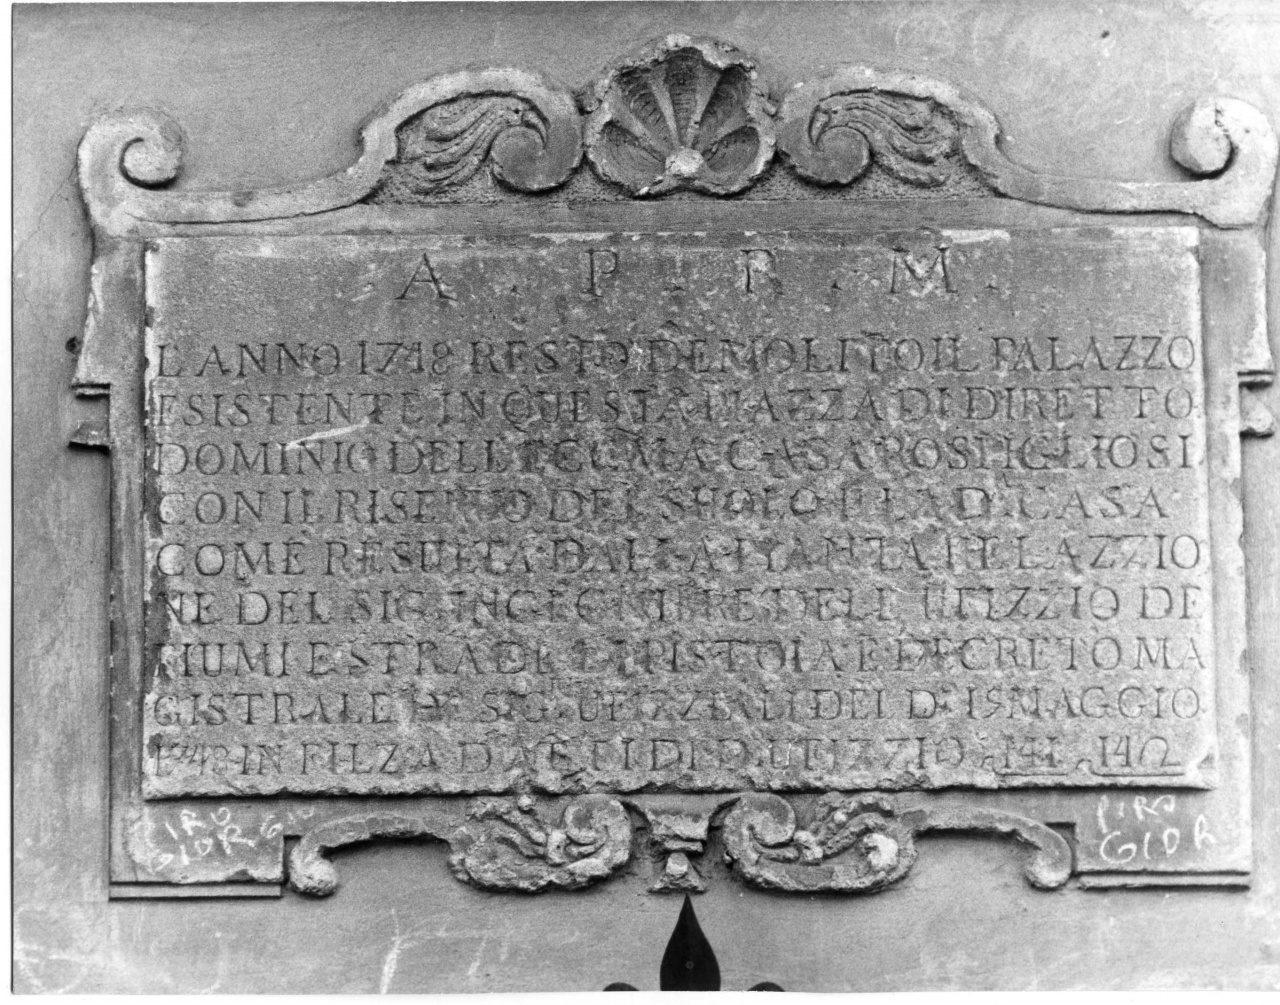 A . P . R . M .
L'ANNO 1748 RESTÒ DEMOLITO IL PALAZZO
ESISTENTE IN QUESTA PIAZZA DI DIRETTO
DOMINIO DELL ECC.MA CASA ROSPIGLIOSI
CON IL RISERVO DEL SUOLO P. LA D. CASA
COME RESULTA DALLA PIANTA E RELAZZIO
NE DEL SIG. INGEGNIERE DELL UFIZZIO DE
FIUMI E STRADE DI PISTOIA E DECRETO MA
GISTRALE DE SIG. UFIZZIALI DEL DI 15 MAGGIO
1748 IN FILZA D DI D. UFIZZIO A 141 A 142
PIRO GIO
GIOR
PIRO
GIOR